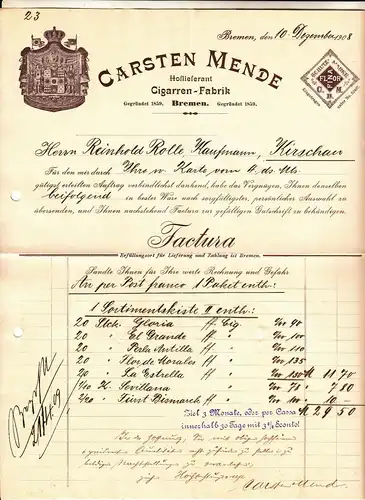 23
Bremen, den 10. Dezember 1908
CARSTEN MENDE
Hoflieferant
Cigarren-Fabrik
Gegründet 1859. Bremen. Gegründet 1859.
FLZOR
C. M.
Herrn Reinhold Rolle Kaufmann, Kirschau
Für den mir durch Ihre w. Karte vom 4. ds. Mts.
gütigst erteilten Auftrag verbindlichst dankend, habe das Vergnügen, Ihnen denselben
beifolgend in bester Ware nach sorgfältigster, persönlicher Auswahl zu
übersenden, und Ihnen nachstehend Factura zur gefälligen Gutschrift zu behändigen.
Factura
Erfüllungsort für Lieferung und Zahlung ist Bremen.
Sandte Ihnen für Ihre werte Rechnung und Gefahr
An per Post franco 1 Paket enth:
1 Sortimentskiste II enth:
20 Stck. Gloria ff Cig. 90
20 " El Grande ff " 100
20 " Perla Antilla ff " 110
20 " Flor de Morales ff " 135
20 " La Estrella ff " 150 M 11 70
1/10 K. Sevillana " 78 " 7 80
2/20 " Fürst Bismarck ff " 100 " 10 –
M 29 50
Ziel 3 Monate, oder per Cassa
innerhalb 30 Tage mit 3% Sconto!
In der Hoffnung,
Hochachtungsvoll
Carsten Mende